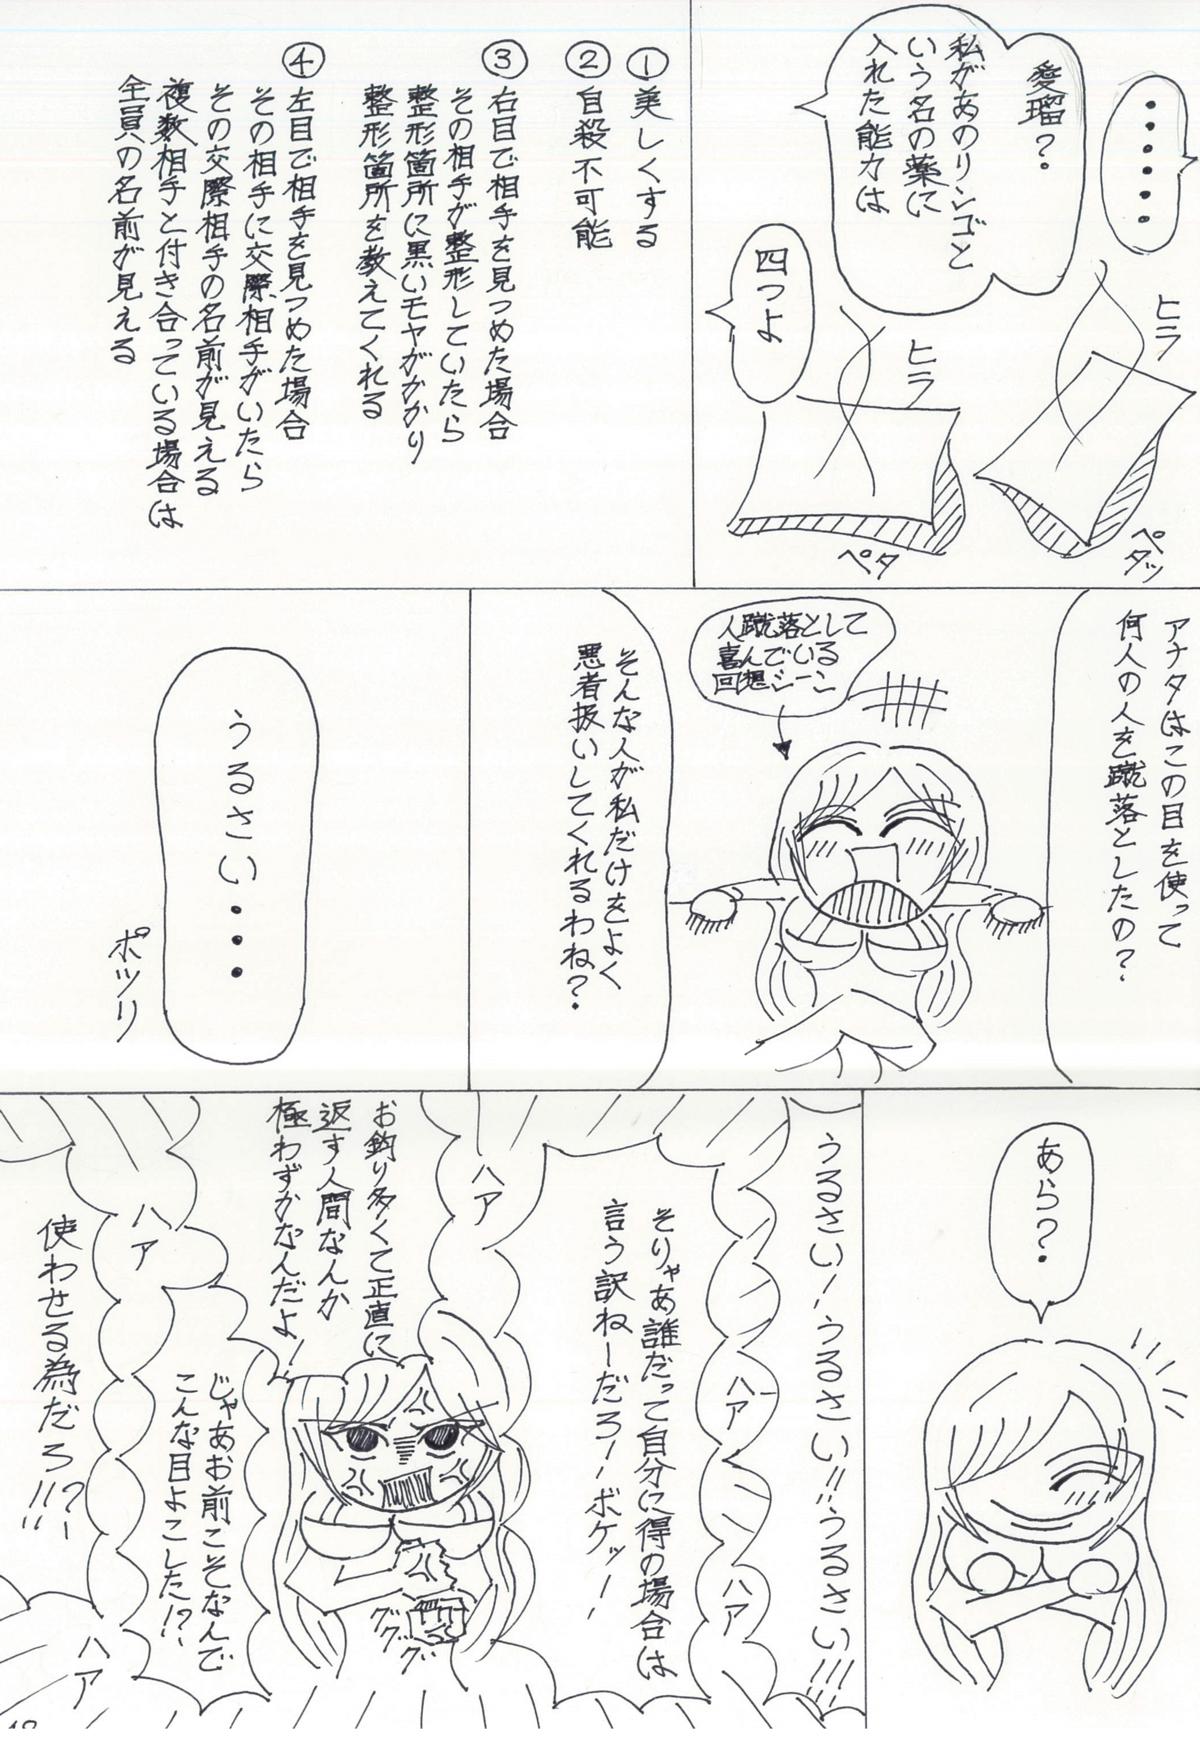 ・・・・・・
ヒラ
ペタッ
愛瑠？
私があのリンゴと
いう名の薬に
入れた能力は
ヒラ
ペタ
四つよ
①美しくする
②自殺不可能
③右目で相手を見つめた場合
その相手が整形していたら
整形箇所に黒いモヤがかかり
整形箇所を教えてくれる
④左目で相手を見つめた場合
その相手に交際相手がいたら
その交際相手の名前が見える
複数相手と付き合っている場合は
全員の名前が見える
アナタはこの目を使って
何人の人を蹴落としたの？
人蹴落として
喜んでいる
回想シーン
そんな人が私だけをよく
悪者扱いしてくれるわね？
うるさい・・・
ポツリ
あら？
うるさい！うるさい！！うるさい！！！
ハア
ハア
そりゃあ誰だって自分に得の場合は
言う訳ねーだろーーボケッーー
ハア
お釣り多くて正直に
返す人間なんか
極わずかなんだよ！
ググググ
じゃあお前こそなんで
こんな目よこした！？
ハア
使わせる為だろ！！？
ハア